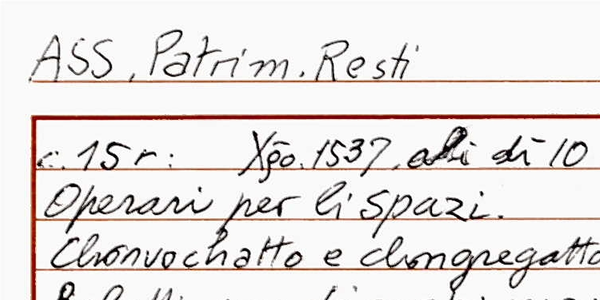 ASS. Patrim. Resti
c. 15 r: Xgo. 1537. adi di 10
Operari per li spazi.
Chonvochatto e chongregatto